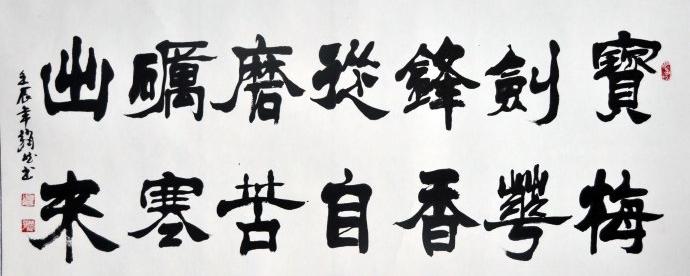 寶劍鋒從磨礪出
梅華香自苦寒來
壬辰年